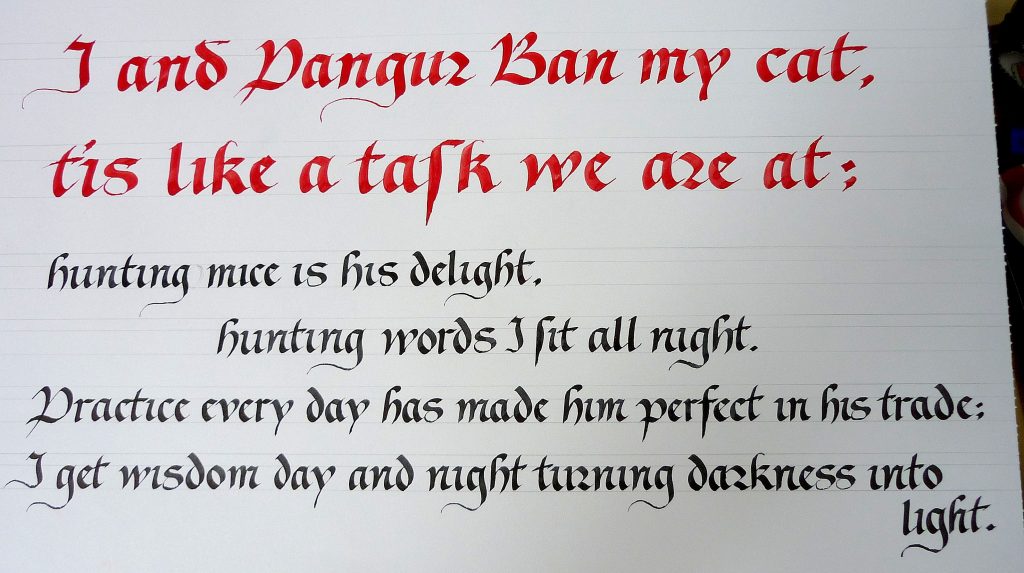 I and Pangur Ban my cat,
t'is like a taſk we are at;
hunting mice is his delight,
hunting words I ſit all night.
Practice every day has made him perfect in his trade;
I get wisdom day and night turning darkness into
light.